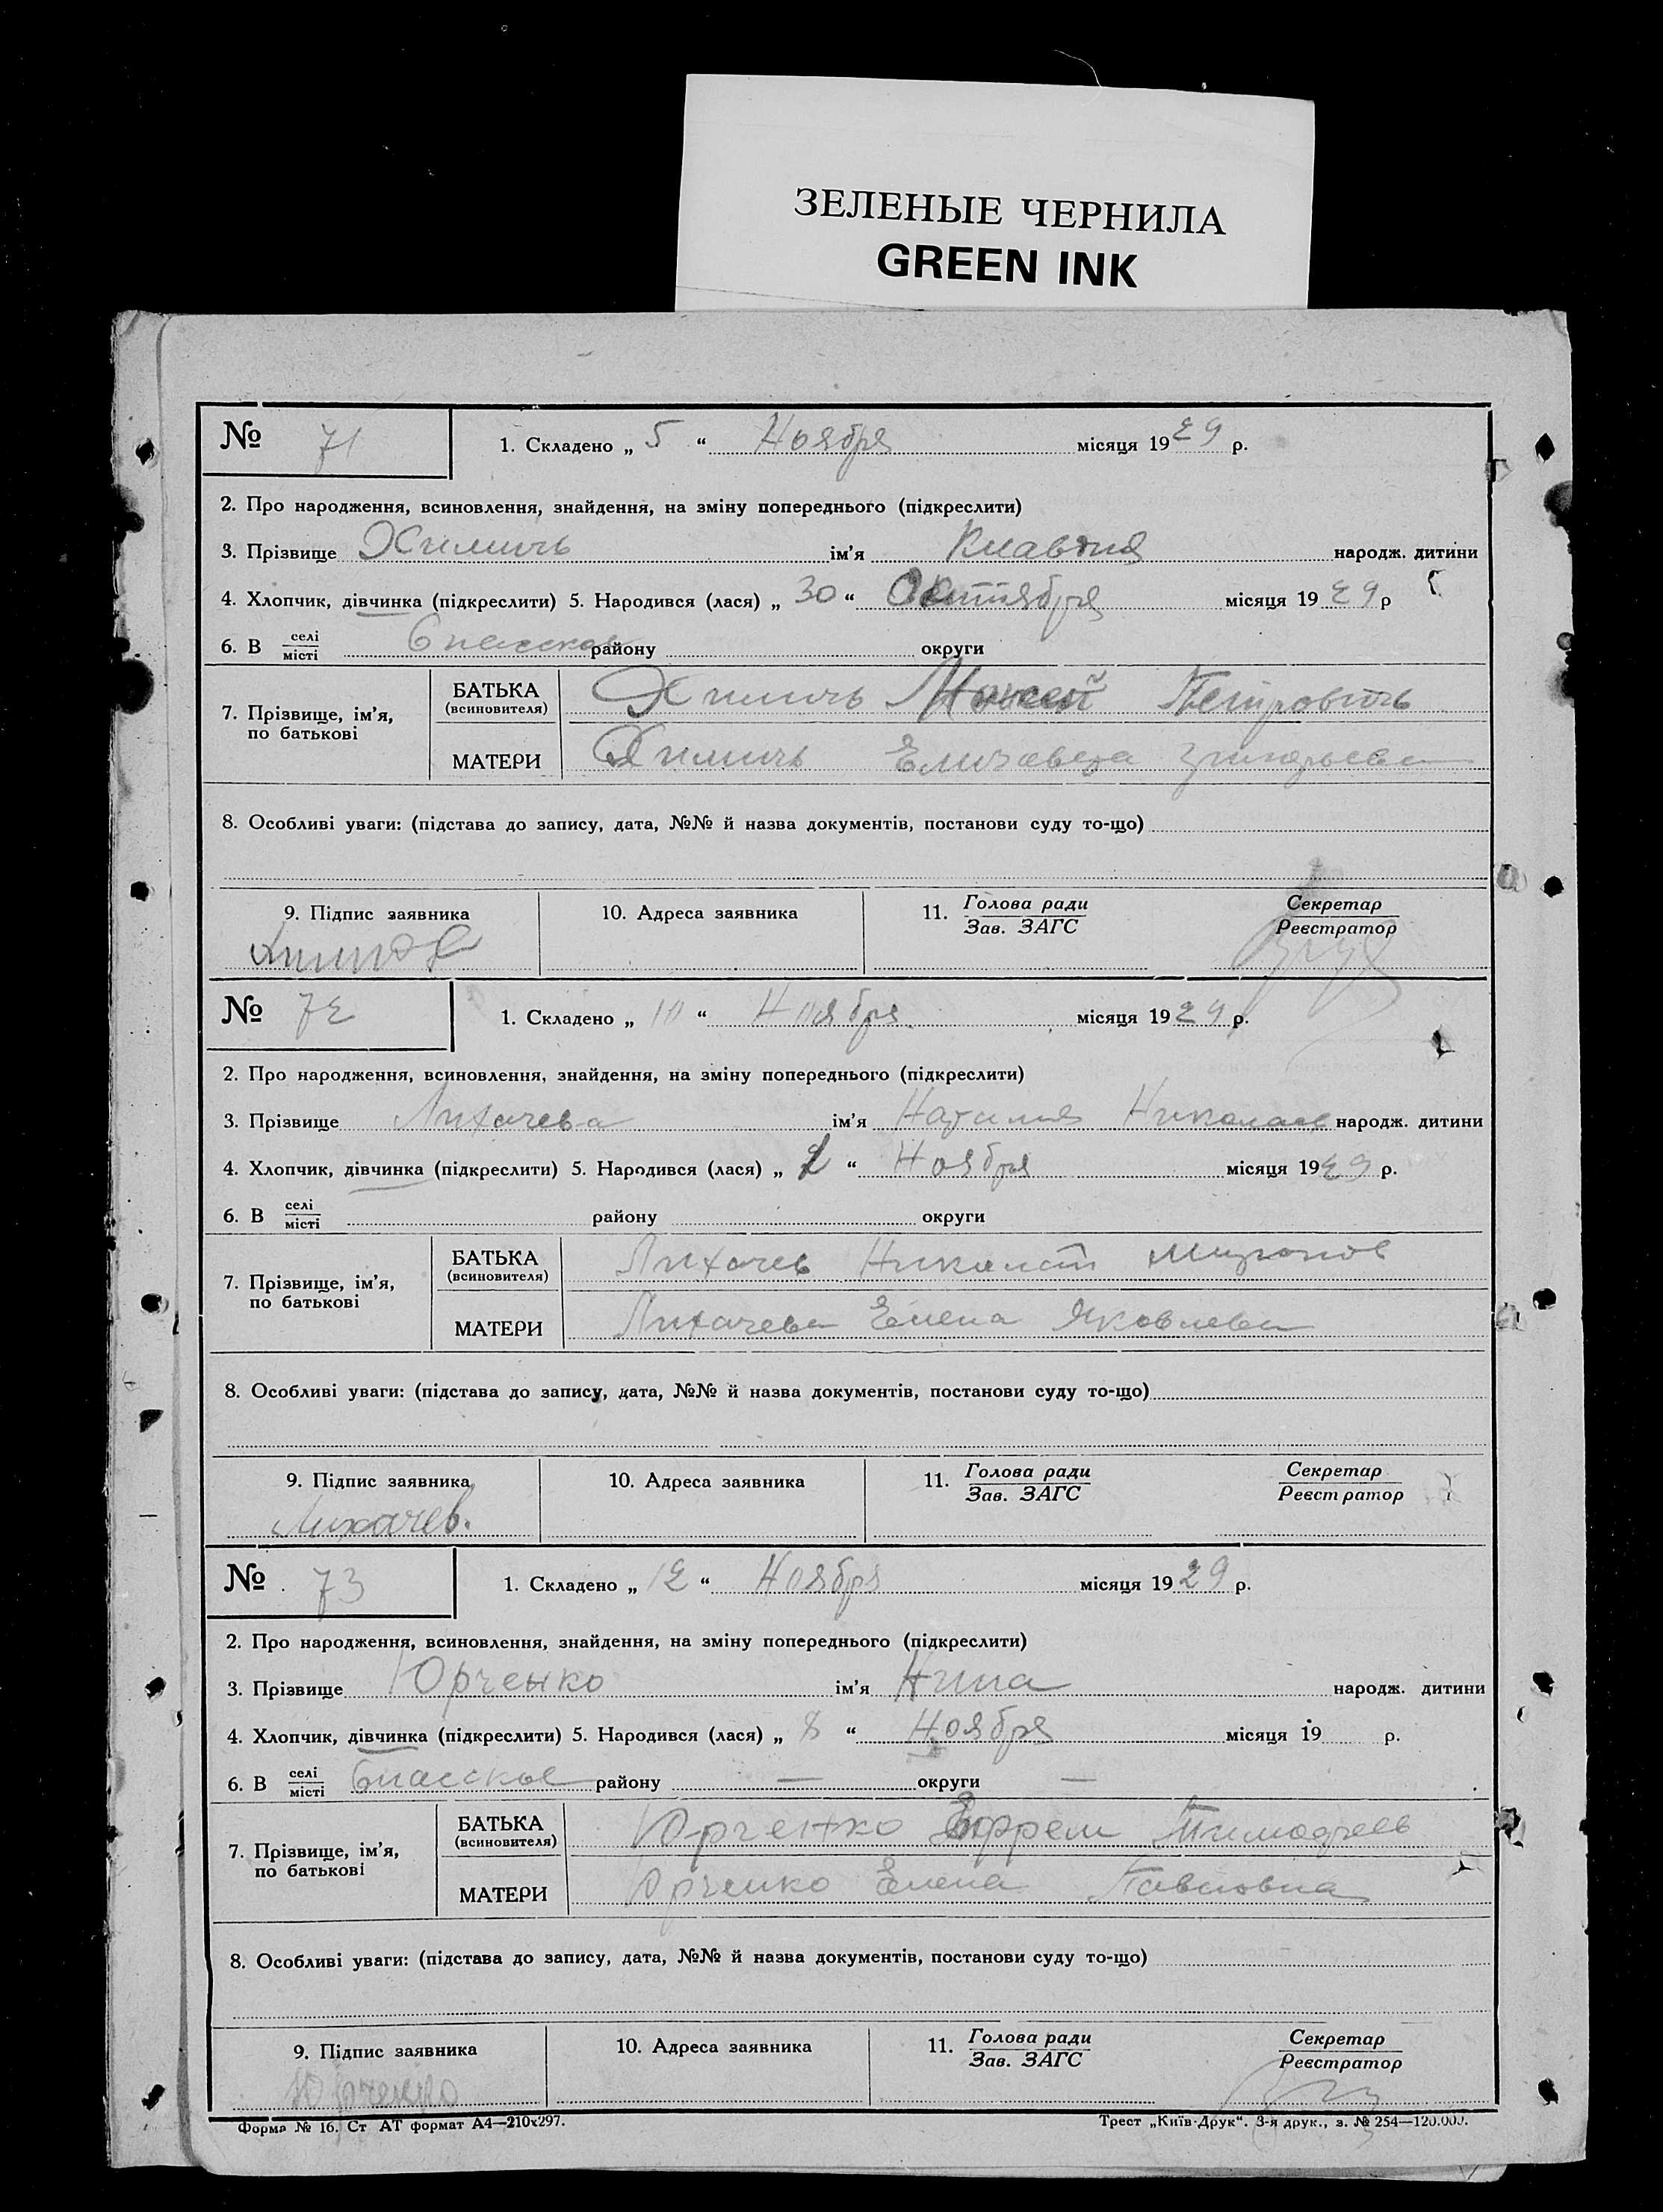 ЗЕЛЕНЫЕ ЧЕРНИЛА
GREEN INK
№ 71 1. Складено „ 5 “ Ноября місяця 1929 р.
2. Про народження, всиновлення, знайдення, на зміну попереднього (підкреслити)
3. Прізвище Химичь ім'я Клавдия народж. дитини
4. Хлопчик, дівчинка (підкреслити) 5. Народився (лася) „ 30 “ Октября місяця 1929 р
6. В селі місті Спасское району округи
7. Прізвище, ім'я, по батькові
БАТЬКА (всиновителя) Химичь Петровичь
МАТЕРИ Химичь Елизавета
8. Особливі уваги: (підстава до запису, дата, №№ й назва документів, постанови суду то-що)
9. Підпис заявника 10. Адреса заявника 11. Голова ради Зав. ЗАГС Секретар Реєстратор
№ 72 1. Складено „ 10 “ Ноября місяця 1929 р.
2. Про народження, всиновлення, знайдення, на зміну попереднього (підкреслити)
3. Прізвище Лихачева ім'я Наталия Николаев народж. дитини
4. Хлопчик, дівчинка (підкреслити) 5. Народився (лася) „ 2 “ Ноября місяця 1929 р.
6. В селі місті району округи
7. Прізвище, ім'я, по батькові
БАТЬКА (всиновителя) Лихачев Николай
МАТЕРИ Лихачева Елена Яковлевн
8. Особливі уваги: (підстава до запису, дата, №№ й назва документів, постанови суду то-що)
9. Підпис заявника 10. Адреса заявника 11. Голова ради Зав. ЗАГС Секретар Реєстратор
Лихачев.
№ 73 1. Складено „ 12 “ Ноября місяця 1929 р.
2. Про народження, всиновлення, знайдення, на зміну попереднього (підкреслити)
3. Прізвище Юрченко ім'я Нина народж. дитини
4. Хлопчик, дівчинка (підкреслити) 5. Народився (лася) „ 8 “ Ноября місяця 19 р.
6. В селі місті Спасское району — округи —
7. Прізвище, ім'я, по батькові
БАТЬКА (всиновителя) Юрченко Ефрем Тимофеев
МАТЕРИ Юрченко Елена Павловна
8. Особливі уваги: (підстава до запису, дата, №№ й назва документів, постанови суду то-що)
9. Підпис заявника 10. Адреса заявника 11. Голова ради Зав. ЗАГС Секретар Реєстратор
Юрченко
Форма № 16. Ст АТ формат А4—210х297. Трест „Київ-Друк“. 3-я друк., з. № 254—120.000.